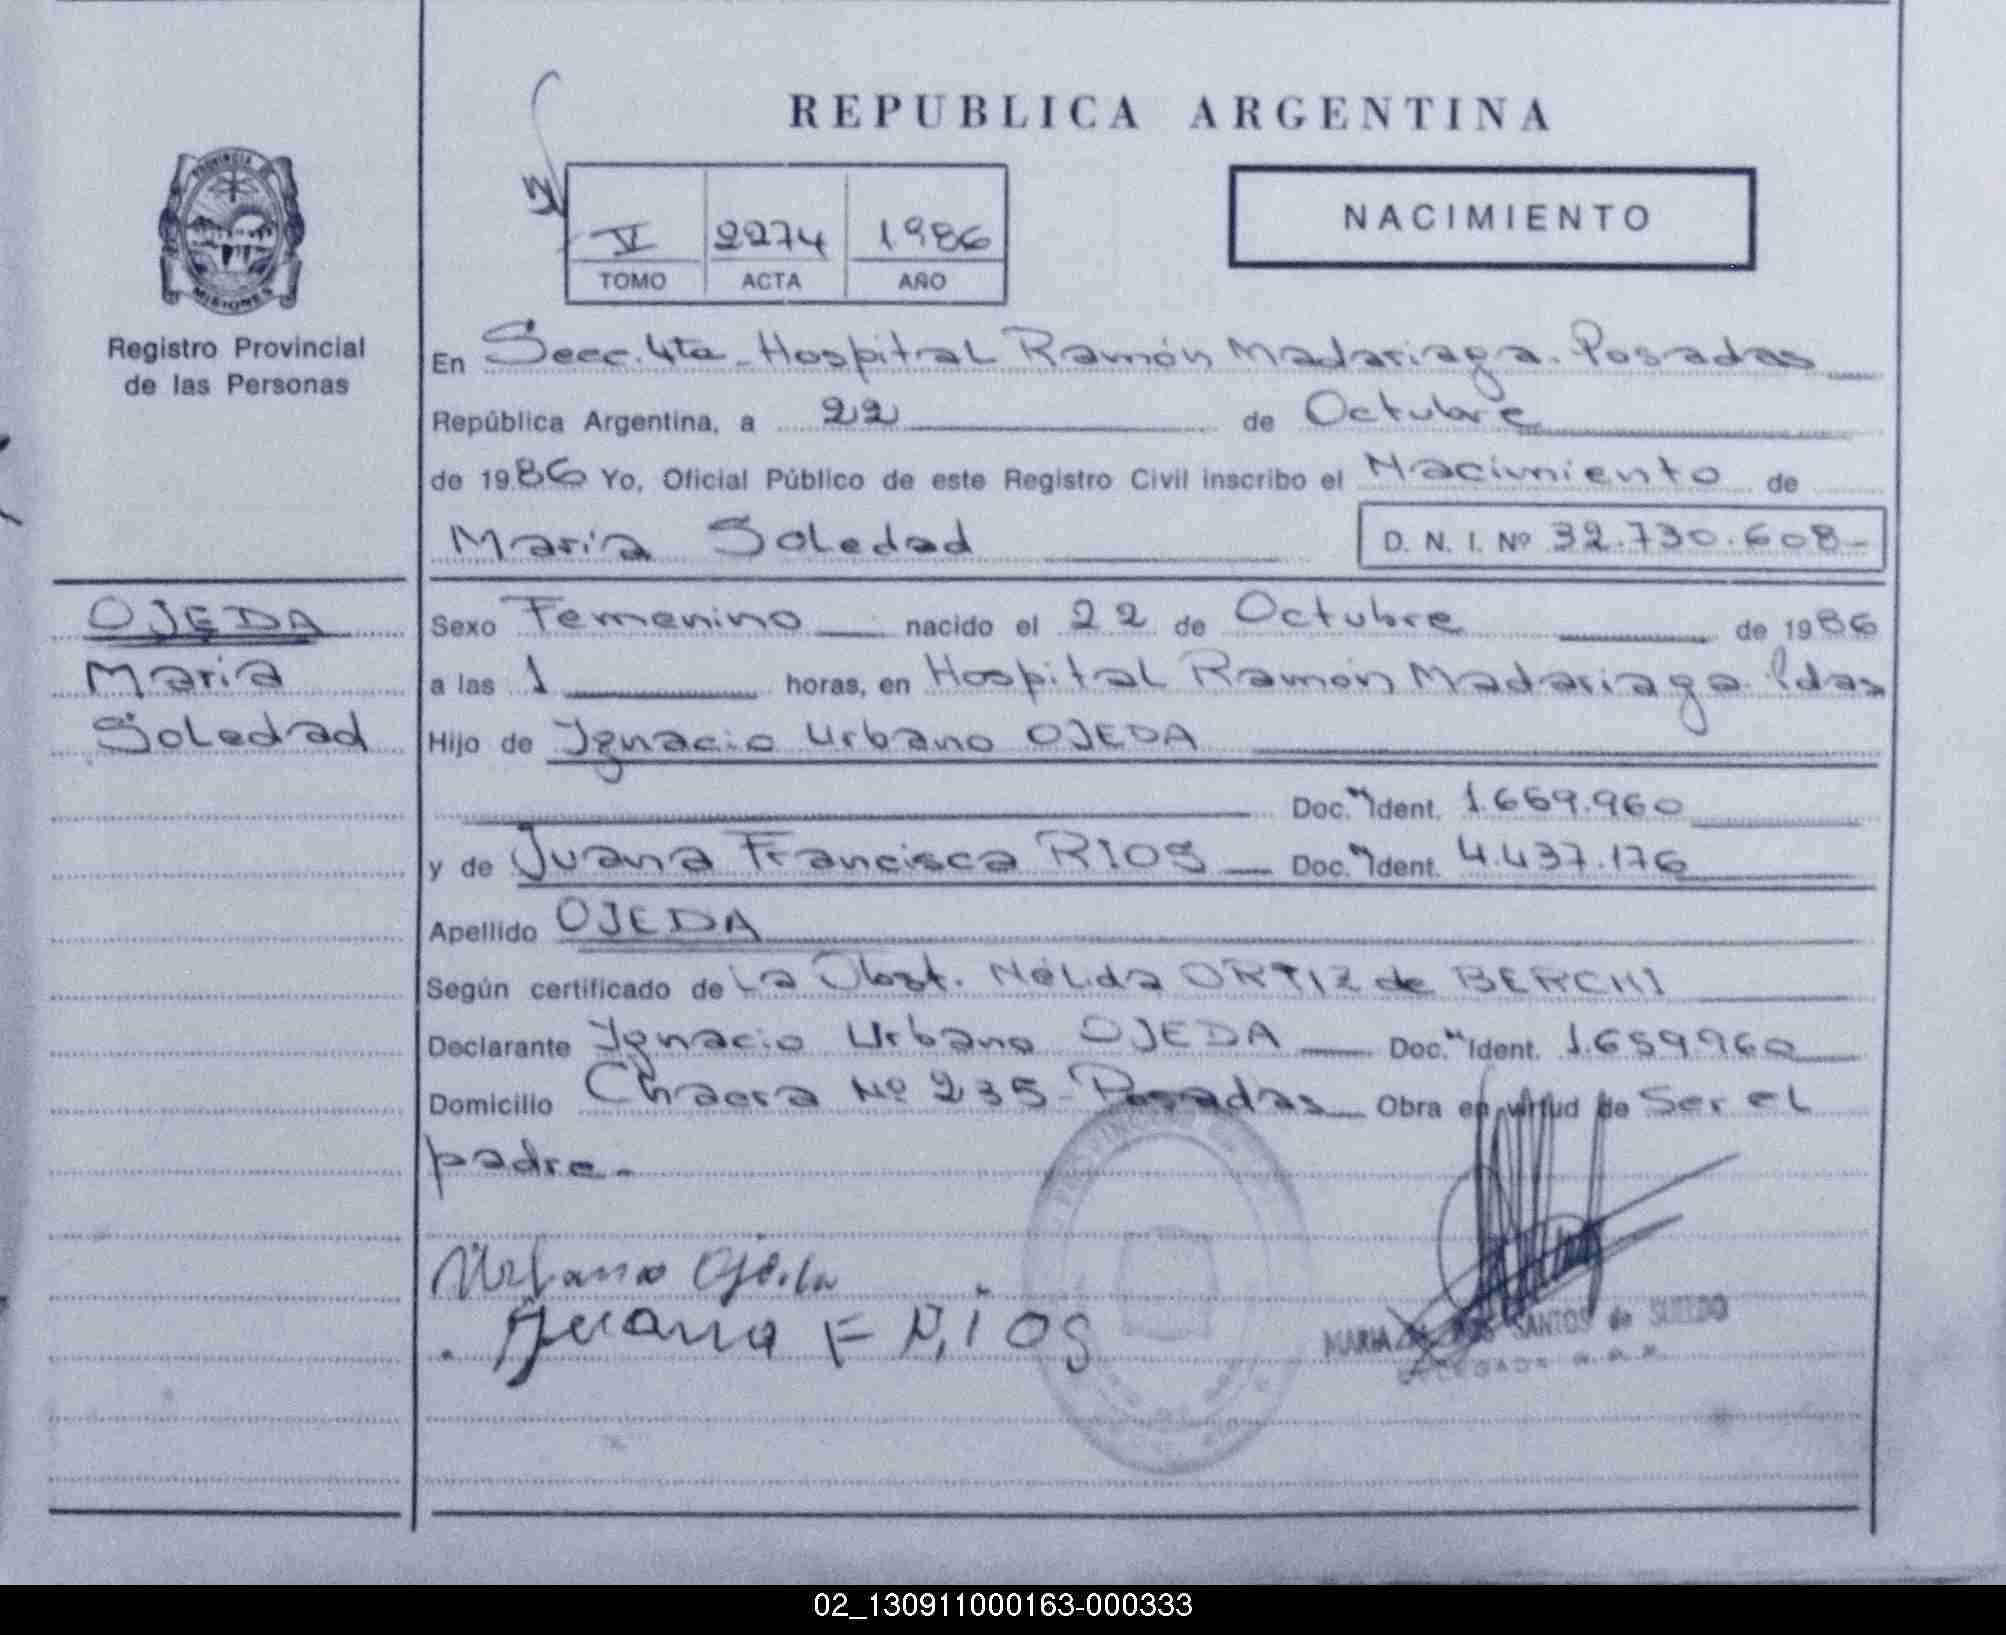 REPUBLICA ARGENTINA
PROVINCIA DE
MISIONES
Registro Provincial
de las Personas
V 2274 1986
TOMO ACTA AÑO
NACIMIENTO
En Secc. 4ta - Hospital Ramón Madariaga. Posadas
República Argentina, a 22 de Octubre
de 1986 Yo, Oficial Público de este Registro Civil inscribo el Nacimiento de
María Soledad D. N. I. Nº 32.730.608-
OJEDA
María
Soledad
Sexo Femenino nacido el 22 de Octubre de 1986
a las 1 horas, en Hospital Ramón Madariaga. Pdas
Hijo de Ygnacio Urbano OJEDA
Doc. Ident. 1.659.960
y de Juana Francisca RIOS Doc. Ident. 4.437.176
Apellido OJEDA
Según certificado de La Obst. Nélida ORTIZ de BERCHI
Declarante Ygnacio Urbano OJEDA Doc. Ident. 1.659.960
Domicilio Chacra Nº 235 - Posadas Obra en virtud de Ser el
padre.-
Urbano Ojeda
Juana F Rios
MARIA SANTOS de SUELDO
02_130911000163-000333